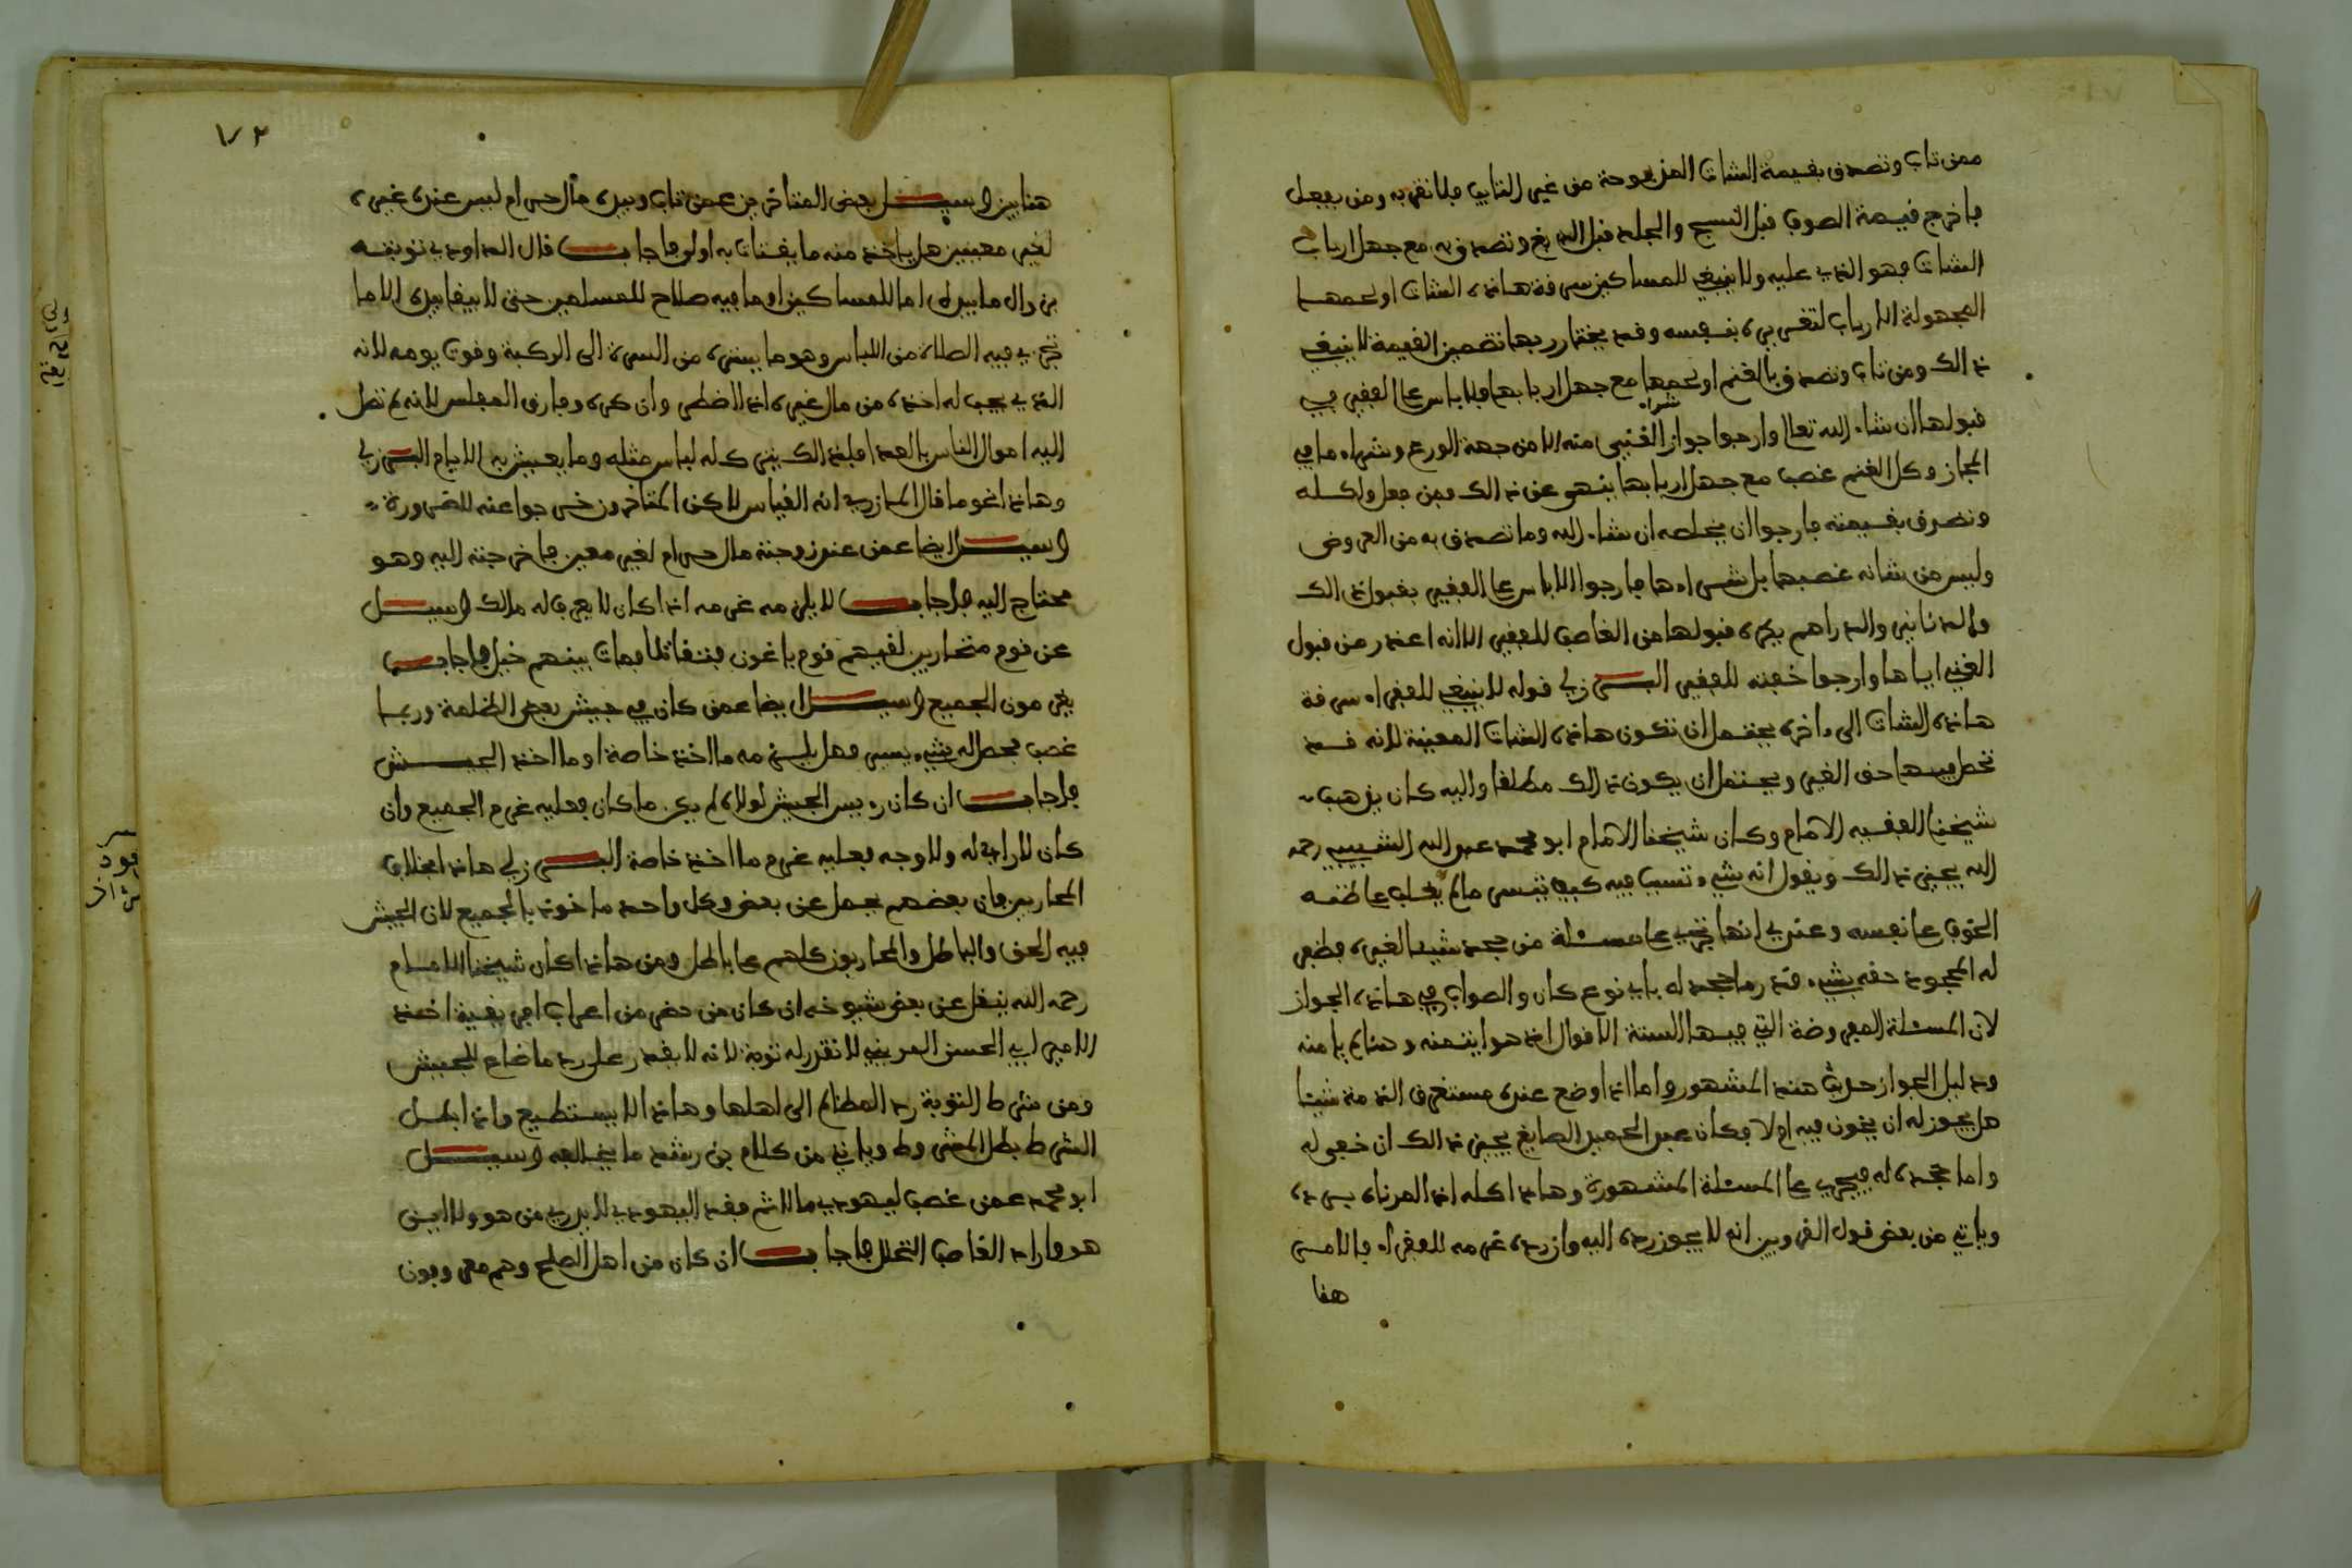 ممن تاب وتصدق بقيمة الشات المذبوحة من غير التايب فلا تقربه ومن بفعل
فاخرج قيمة الصوف قبل النسج والجلد قبل الدبغ وتصدق به مع جهل ارباب
الشات فهو الذي عليه ولا ينبغي للمساكين سرقة هاذه الشات او لحمها
المجهولة الارباب لتغيره بنفسه وقد يختار ربها تضمين القيمة لا ينبغي
ذالك ومن تاب وتصدق بالغنم او لحمها مع جهل اربابها فلا باس على الفقير في
قبولها ان شاء الله تعالى وارجوا جواز شراء الغني منه الا من جهة الورع وشراء ما في
المجاز وكل الغنم غصب مع جهل اربابها ينهى عن ذالك فمن فعل واكله
وتصدق بقيمته فارجوا ان يخلصه ان شاء الله وما تصدق به من العروض
وليس من شانه غصبها بل شراءها فارجوا الا باس على الفقير بقبول ذالك
والدنانير والدراهم يكره قبولها من الغاصب للفقير الا انه اعذر من قبول
الغني اياها وارجوا خفته للفقير البرزلي قوله لا ينبغي للفقراء سرقة
هاذه الشات الى ءاخره يحتمل ان تكون هاذه الشات المعينة لانه قد
تحصل فيها حق الغير ويحتمل ان يكون ذالك مطلقا واليه كان يذهب
شيخنا الفقيه الامام وكان شيخنا الامام ابو محمد عبد الله الشبيبي رحمه
الله يجيز ذالك ويقول انه شيء تسبب فيه كيف تيسر ما لم يغلب على ظنه
الخوف على نفسه وعندي انها تجري على مسئلة من جحد شيئا لغيره فظفر
له المجحود حقه بشيء قدر ما جحد له باي نوع كان والصواب في هاذه الجواز
لان المسئلة المعروضة التي فيها الستة الاقوال اذ هو ايتمنه وهنا لم يامنه
ودليل الجواز حديث هند المشهور واما اذا وضع عنده مستغرق الذمة شيئا
هل يجوز له ان يخون فيه ام لا فكان عبد الحميد الصايغ يجيز ذالك ان خفي له
واما جحده له فيجري على المسئلة المشهورة وهاذا كله اذ امرناه برده
وياتي من بعض قول القرويين انه لا يجوز رده اليه وان رده غرمه للفقراء فالامر
هنا
١٧٢
هنا بين وسيل بعض المتاخرين عمن تاب وبيده مال حرام ليس عنده غيره
لغير معينين هل ياخذ منه ما يقتات به او لا فاجاب قال الداودي توبته
بزوال ما بيده اما للمساكين او ما فيه صلاح للمسلمين حتى لا يبقى بيده الا ما
تجزي فيه الصلاة من اللباس وهو ما يستره من السرة الى الركبة وقوت يومه لانه
الذي يجب له اخذه من مال غيره اذا اضطر وان كره وفارق المفلس لانه لم تصل
اليه اموال الناس بالعدا فلذالك يترك له لباس مثله وما يعيش به الايام البرزلي
وهاذا نحو ما قال المازري انه القياس لاكن المتاخرون خرجوا عنه للضرورة
وسيل ايضا عمن عند زوجته مال حرام لغير معين فاخرجته اليه وهو
محتاج اليه فاجاب لا يلزمه غرمه اذا كان لا يعرف له مالك وسيل
عن قوم متحاربين لقيهم قوم باغون فتقاتلا فمات بينهم خيل فاجاب
يغرمون الجميع وسيل ايضا عمن كان في جيش بعض الظلمة وربما
غصب فحصل له شيء يسير فهل يلزمه ما اخذ خاصة او ما اخذ الجيش
فاجاب ان كان رءيس الجيش لولاه لم يكن ما كان فعليه غرم الجميع وان
كان لا راي له ولا وجه فعليه غرم ما اخذ خاصة البرزلي هاذا بخلاف
المحاربين فان بعضهم يحمل عن بعض وكل واحد ماخوذ بالجميع لان الجيش
فيه الحق والباطل والمحاربون كلهم على باطل ومن هاذا كان شيخنا الامام
رحمه الله ينقل عن بعض شيوخه ان كان من حضر من اعراب افريقية اخذ
الامير ابي الحسن المريني لا تقدر له توبة لانه لا يقدر على رد ما ضاع للجيش
ومن شرط التوبة رد المظالم الى اهلها وهاذا لا يستطيع واذا بطل
الشرط بطل المشروط وياتي من كلام بن رشد ما يخالفه وسيل
ابو محمد عمن غصب ليهودي مالا ثم فقد اليهودي لا يدري من هو ولا اين
هو فاراد الغاصب التحلل فاجاب ان كان من اهل الصلح وهم معروفون